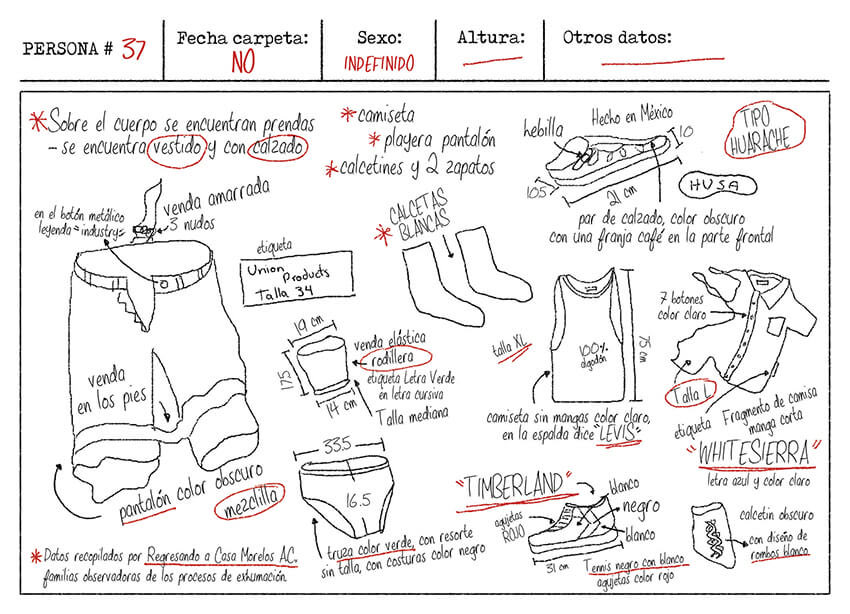 PERSONA # 37
Fecha carpeta:
NO
Sexo:
INDEFINIDO
Altura:
Otros datos:
*Sobre el cuerpo se encuentran prendas
- se encuentra vestido y con calzado
*camiseta
*playera pantalón
*calcetines y 2 zapatos
hebilla
Hecho en México
10
105
21 cm
TIPO
HUARACHE
HUSA
par de calzado, color obscuro
con una franja café en la parte frontal
venda amarrada
3 nudos
en el botón metálico
leyenda="industry"
etiqueta
Union
Products
Talla 34
*CALCETAS
BLANCAS
venda
en los pies
pantalón color obscuro
mezclilla
19 cm
175
14 cm
venda elástica
rodillera
etiqueta Letra Verde
en letra cursiva
Talla mediana
talla XL
100%
algodón
75 cm
camiseta sin mangas color claro,
en la espalda dice "LEVIS"
7 botones
color claro
Talla L
etiqueta
Fragmento de camisa
manga corta
"WHITESIERRA"
letra azul y color claro
33.5
16.5
truza color verde, con resorte
sin talla, con costuras color negro
"TIMBERLAND"
agujetas
ROJO
blanco
negro
blanco
31 cm
Tennis negro con blanco
agujetas color rojo
calcetin obscuro
con diseño de
rombos blanco
*Datos recopilados por Regresando a Casa Morelos AC.
familias observadoras de los procesos de exhumación.